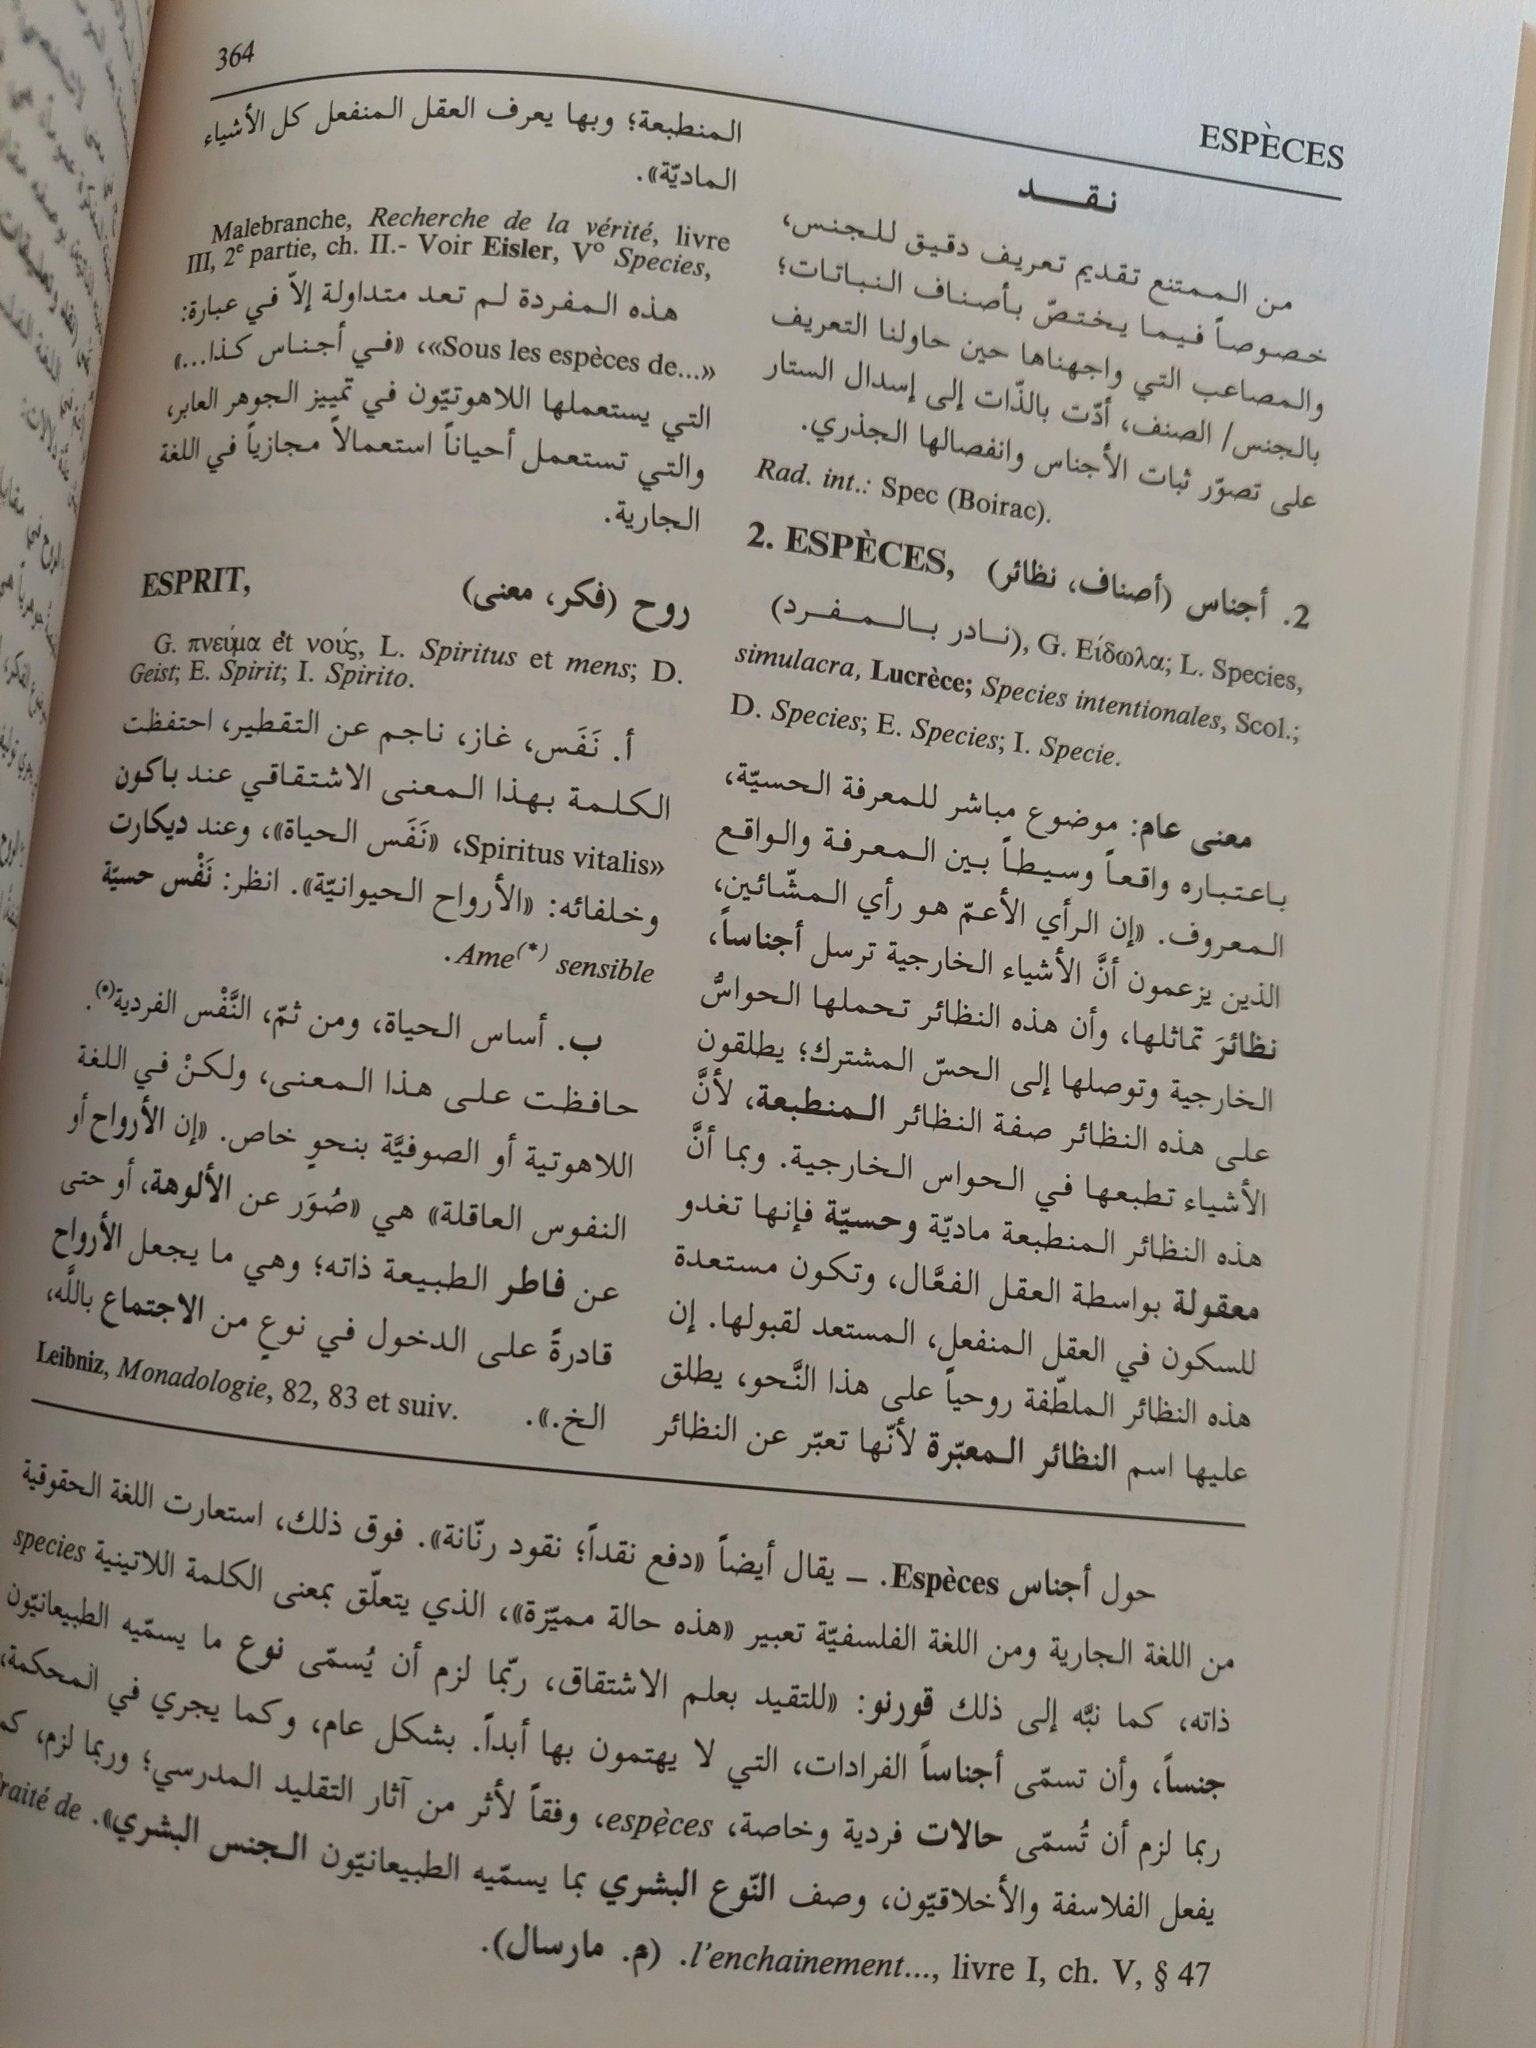 364
ESPÈCES
نقد
من الممتنع تقديم تعريف دقيق للجنس،
خصوصاً فيما يختصّ بأصناف النباتات؛
والمصاعب التي واجهناها حين حاولنا التعريف
بالجنس/ الصنف، أدّت بالذّات إلى إسدال الستار
على تصوّر ثبات الأجناس وانفصالها الجذري.
Rad. int.: Spec (Boirac).
2. أجناس (أصناف، نظائر) 2. ESPÈCES,
(نادر بالمفرد), G. Εἴδωλα; L. Species,
simulacra, Lucrèce; Species intentionales, Scol.;
D. Species; E. Species; I. Specie.
معنى عام: موضوع مباشر للمعرفة الحسيّة،
باعتباره واقعاً وسيطاً بين المعرفة والواقع
المعروف. «إن الرأي الأعمّ هو رأي المشّائين،
الذين يزعمون أنَّ الأشياء الخارجية ترسل أجناساً،
نظائرَ تماثلها، وأن هذه النظائر تحملها الحواسُّ
الخارجية وتوصلها إلى الحسّ المشترك؛ يطلقون
على هذه النظائر صفة النظائر المنطبعة، لأنَّ
الأشياء تطبعها في الحواس الخارجية. وبما أنَّ
هذه النظائر المنطبعة ماديّة وحسيّة فإنها تغدو
معقولة بواسطة العقل الفعَّال، وتكون مستعدة
للسكون في العقل المنفعل، المستعد لقبولها. إن
هذه النظائر الملطّفة روحياً على هذا النَّحو، يطلق
عليها اسم النظائر المعبّرة لأنّها تعبّر عن النظائر
المنطبعة؛ وبها يعرف العقل المنفعل كل الأشياء
الماديّة».
Malebranche, Recherche de la vérité, livre
III, 2e partie, ch. II.- Voir Eisler, Vo Species,
هذه المفردة لم تعد متداولة إلاّ في عبارة:
«Sous les espèces de...»، «في أجناس كذا...»
التي يستعملها اللاهوتيّون في تمييز الجوهر العابر،
والتي تستعمل أحياناً استعمالاً مجازياً في اللغة
الجارية.
روح (فكر، معنى) ESPRIT,
G. πνεύμα et νούς, L. Spiritus et mens; D.
Geist; E. Spirit; I. Spirito.
أ. نَفَس، غاز، ناجم عن التقطير، احتفظت
الكلمة بهذا المعنى الاشتقاقي عند باكون
«Spiritus vitalis، «نَفَس الحياة»، وعند ديكارت
وخلفائه: «الأرواح الحيوانيّة». انظر: نَفْس حسيّة
Ame(*) sensible.
ب. أساس الحياة، ومن ثمّ، النَّفْس الفردية(*).
حافظت على هذا المعنى، ولكنْ في اللغة
اللاهوتية أو الصوفيَّة بنحوٍ خاص. «إن الأرواح أو
النفوس العاقلة» هي «صُوَر عن الألوهة، أو حتى
عن فاطر الطبيعة ذاته؛ وهي ما يجعل الأرواح
قادرةً على الدخول في نوعٍ من الاجتماع باللَّه،
الخ.». Leibniz, Monadologie, 82, 83 et suiv.
حول أجناس Espèces. ــ يقال أيضاً «دفع نقداً؛ نقود رنّانة». فوق ذلك، استعارت اللغة الحقوقية
من اللغة الجارية ومن اللغة الفلسفيّة تعبير «هذه حالة مميّزة»، الذي يتعلّق بمعنى الكلمة اللاتينية species
ذاته، كما نبَّه إلى ذلك قورنو: «للتقيد بعلم الاشتقاق، ربّما لزم أن يُسمّى نوع ما يسمّيه الطبيعانيّون
جنساً، وأن تسمّى أجناساً الفرادات، التي لا يهتمون بها أبداً. بشكل عام، وكما يجري في المحكمة،
ربما لزم أن تُسمّى حالات فردية وخاصة، espèces، وفقاً لأثر من آثار التقليد المدرسي؛ وربما لزم،
يفعل الفلاسفة والأخلاقيّون، وصف النّوع البشري بما يسمّيه الطبيعانيّون الجنس البشري». Traité de
l'enchainement..., livre I, ch. V, § 47. (م. مارسال).